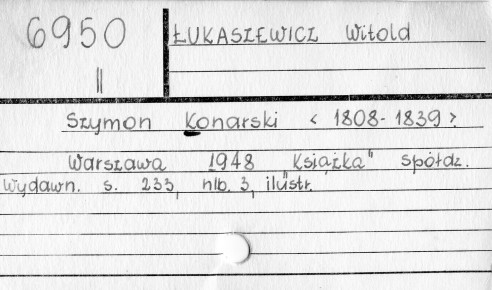 6950
II
ŁUKASZEWICZ Witold
Szymon Konarski < 1808-1839 >
Warszawa 1948 Książka" Spółdz.
Wydawn. s. 233, nlb. 3, ilustr.